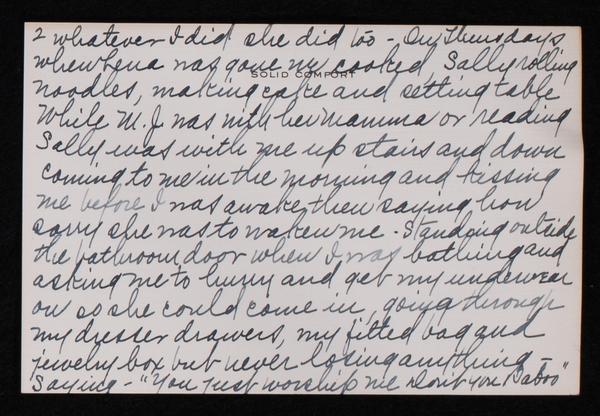 2 whatever I did she did too - On Thursdays
when Lena was gone we cooked, Sally rolling
SOLID COMFORT
noodles, making cake and setting table
While M. J. was with her mamma or reading
Sally was with me up stairs and down
coming to me in the morning and kissing
me before I was awake then saying how
sorry she was to waken me - Standing outside
the bathroom door when I was bathing and
asking me to hurry and get my underwear
on so she could come in, going through
my dresser drawers, my fitted bag and
jewelry box but never losing anything -
Saying - "You just worship me don't you Baboo"